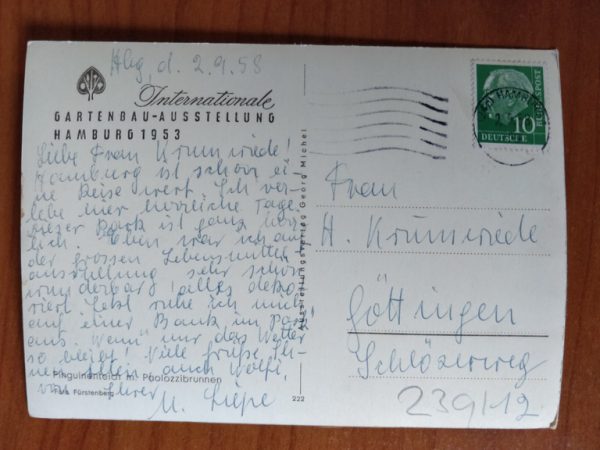 Hbg, d. 2.9.53
Internationale
GARTENBAU-AUSSTELLUNG
HAMBURG 1953
Liebe Frau Krumwiede!
Hamburg ist schon ei-
ne Reise wert. Ich ver-
lebe hier herrliche Tage
dieser Park ist ganz herr-
lich. Eben war ich auf
der grossen Lebensmittel-
ausstellung sehr schön
wunderbar! alles deko-
riert. Jetzt ruhe ich mich
auf einer Bank im Park
aus. Wenn nur das Wetter
so bleibt! Viele Grüße, Ih-
nen allen auch
von Ihrer
M. Liepe
Pinguinenteich m. Paolozzibrunnen
Foto Fürstenberg
222
Ausstellungsverlag Georg Michel
10
DEUTSCHE
BUNDESPOST
HAMBURG
Frau
H. Krumwiede
Göttingen
Schlözerweg
239/12